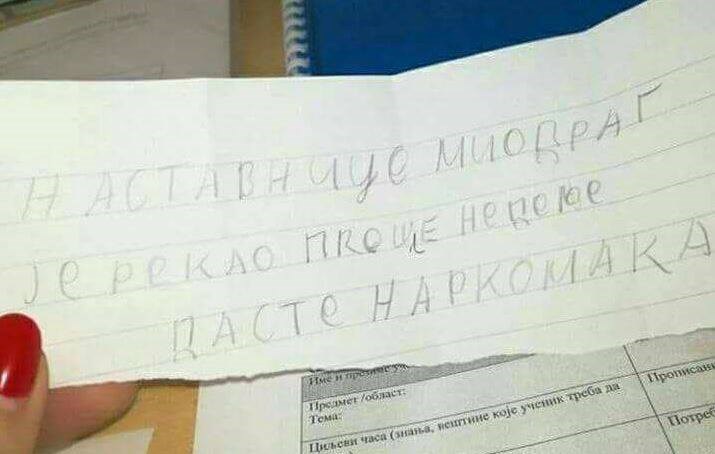 НАСТАВНИЦЕ МИОДРАГ
ЈЕ РЕКАО ПРОШЛЕ НЕДЕЉЕ
ДАСТЕ НАРКОМАКА
Име и презиме
Предмет /област:
Тема:
Циљеви часа (знања, вештине које ученик треба да
Прописани
Потреб